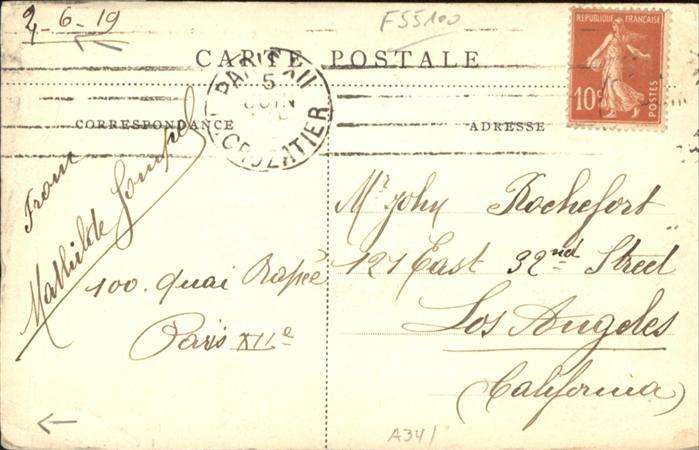 2-6-19
F55100
CARTE POSTALE
REPUBLIQUE FRANÇAISE
10c
POSTES
PARIS XII
5
JUIN
CROZATIER
CORRESPONDANCE
ADRESSE
From
Mathilde
100. Quai Rapée
Paris XIIe
Mr John Rochefort
121 East 32nd Street
Los Angeles
(California)
A341